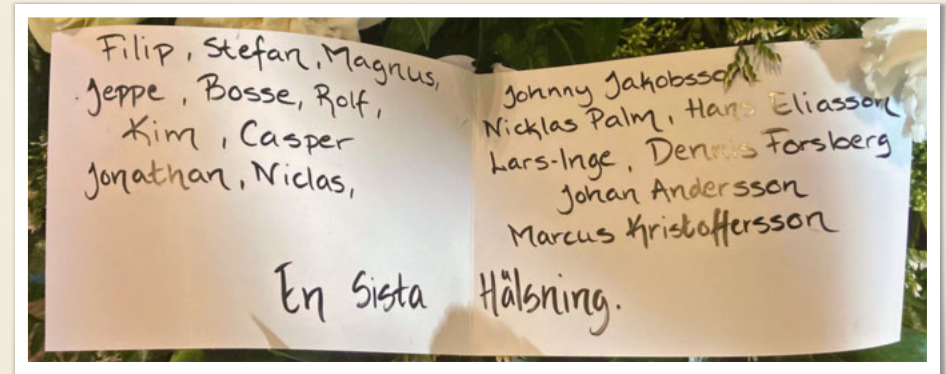 Filip, Stefan, Magnus,
Jeppe, Bosse, Rolf,
Kim, Casper
Jonathan, Niclas,
Johnny Jakobsson
Nicklas Palm, Hans Eliasson
Lars-Inge, Dennis Forsberg
Johan Andersson
Marcus Kristoffersson
En Sista Hälsning.